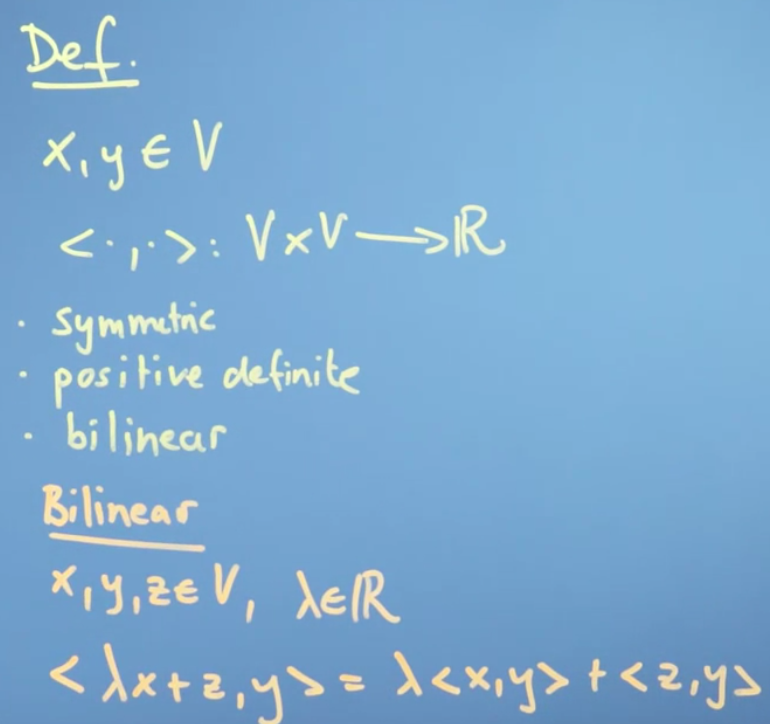 Def.
x, y ∈ V
<·,·>: V×V ⟶ ℝ
· symmetric
· positive definite
· bilinear
Bilinear
x, y, z ∈ V, λ ∈ ℝ
<λx+z, y> = λ<x,y> + <z,y>